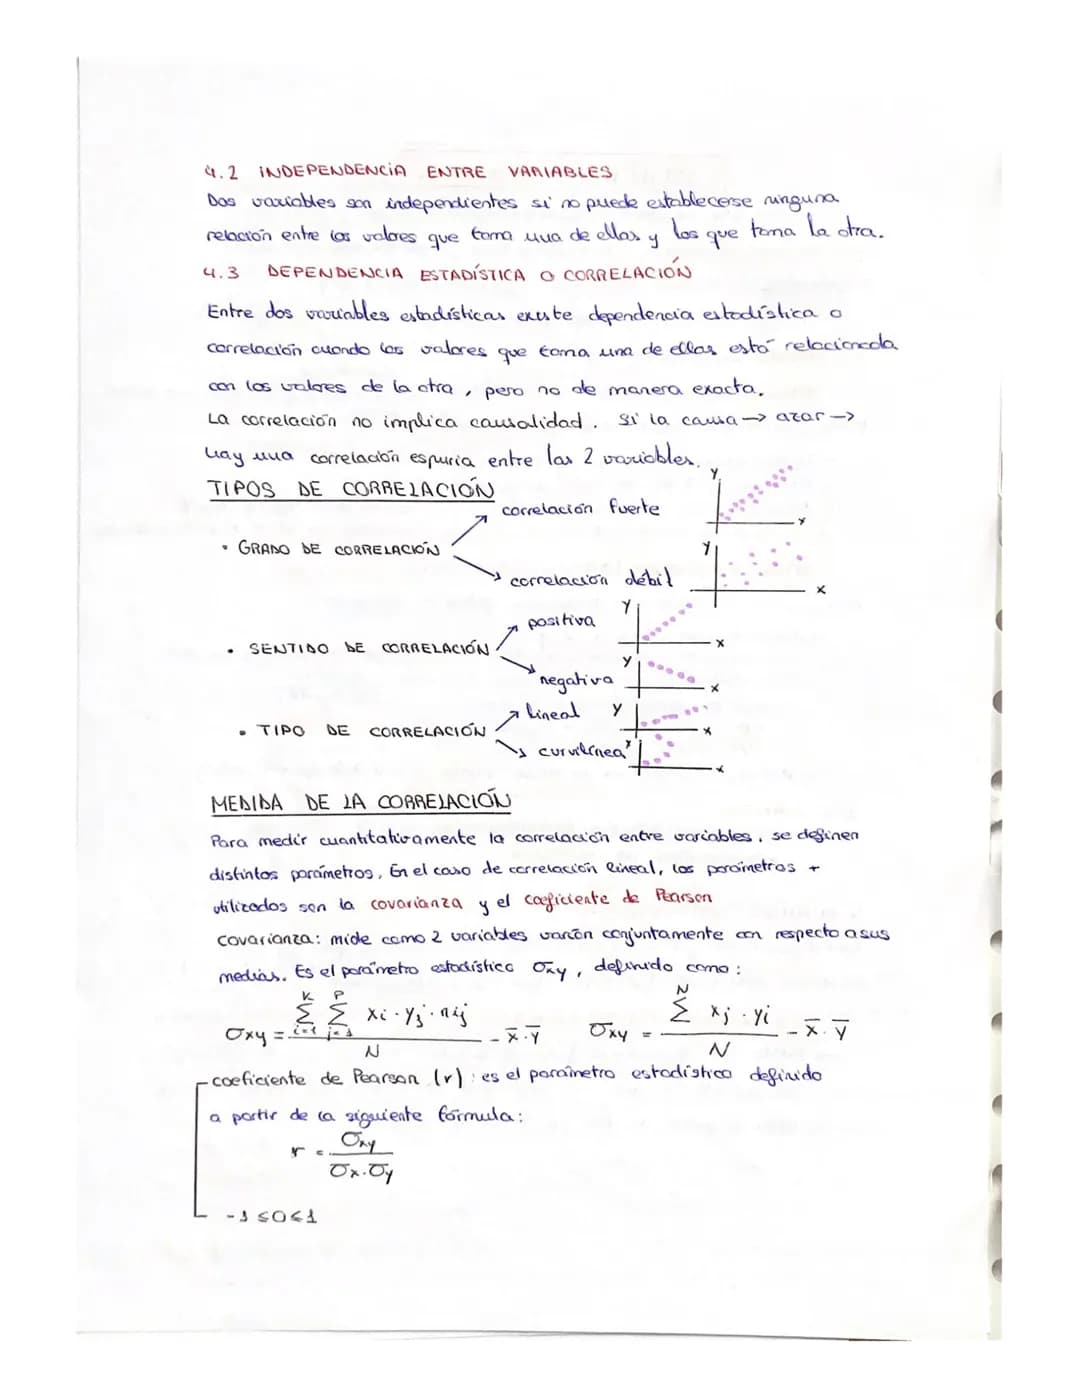 4.2 INDEPENDENCIA ENTRE VARIABLES
Dos variables son independientes si no puede establecerse ninguna
relación entre los valores que toma una de ellas y los que toma la otra.
4.3 DEPENDENCIA ESTADÍSTICA O CORRELACIÓN
Entre dos variables estadísticas existe dependencia estadística o
correlación cuando los valores que toma una de ellas está relacionada
con los valores de la otra, pero no de manera exacta.
La correlación no implica causalidad. Si la causa → azar →
hay una correlación espuria entre las 2 variables.
TIPOS DE CORRELACIÓN
correlación fuerte
Y
x
· GRADO DE CORRELACIÓN
correlación débil
Y
x
positiva
Y
x
· SENTIDO DE CORRELACIÓN
negativa
Y
x
lineal
Y
x
· TIPO DE CORRELACIÓN
curvilínea
Y
x
MEDIDA DE LA CORRELACIÓN
Para medir cuantitativamente la correlación entre variables, se definen
distintos parámetros. En el caso de correlación lineal, los parámetros +
utilizados son la covarianza y el coeficiente de Pearson
covarianza: mide como 2 variables varían conjuntamente con respecto a sus
medias. Es el parámetro estadístico σxy, definido como:
σxy = (Σ_{i=1}^{K} Σ_{j=1}^{P} xi · yj · nij) / N - x̄ · ȳ    σxy = (Σ^{N} xj · yi) / N - x̄ · ȳ
coeficiente de Pearson (r): es el parámetro estadístico definido
a partir de la siguiente fórmula:
r = σxy / (σx · σy)
-1 ≤ 0 ≤ 1